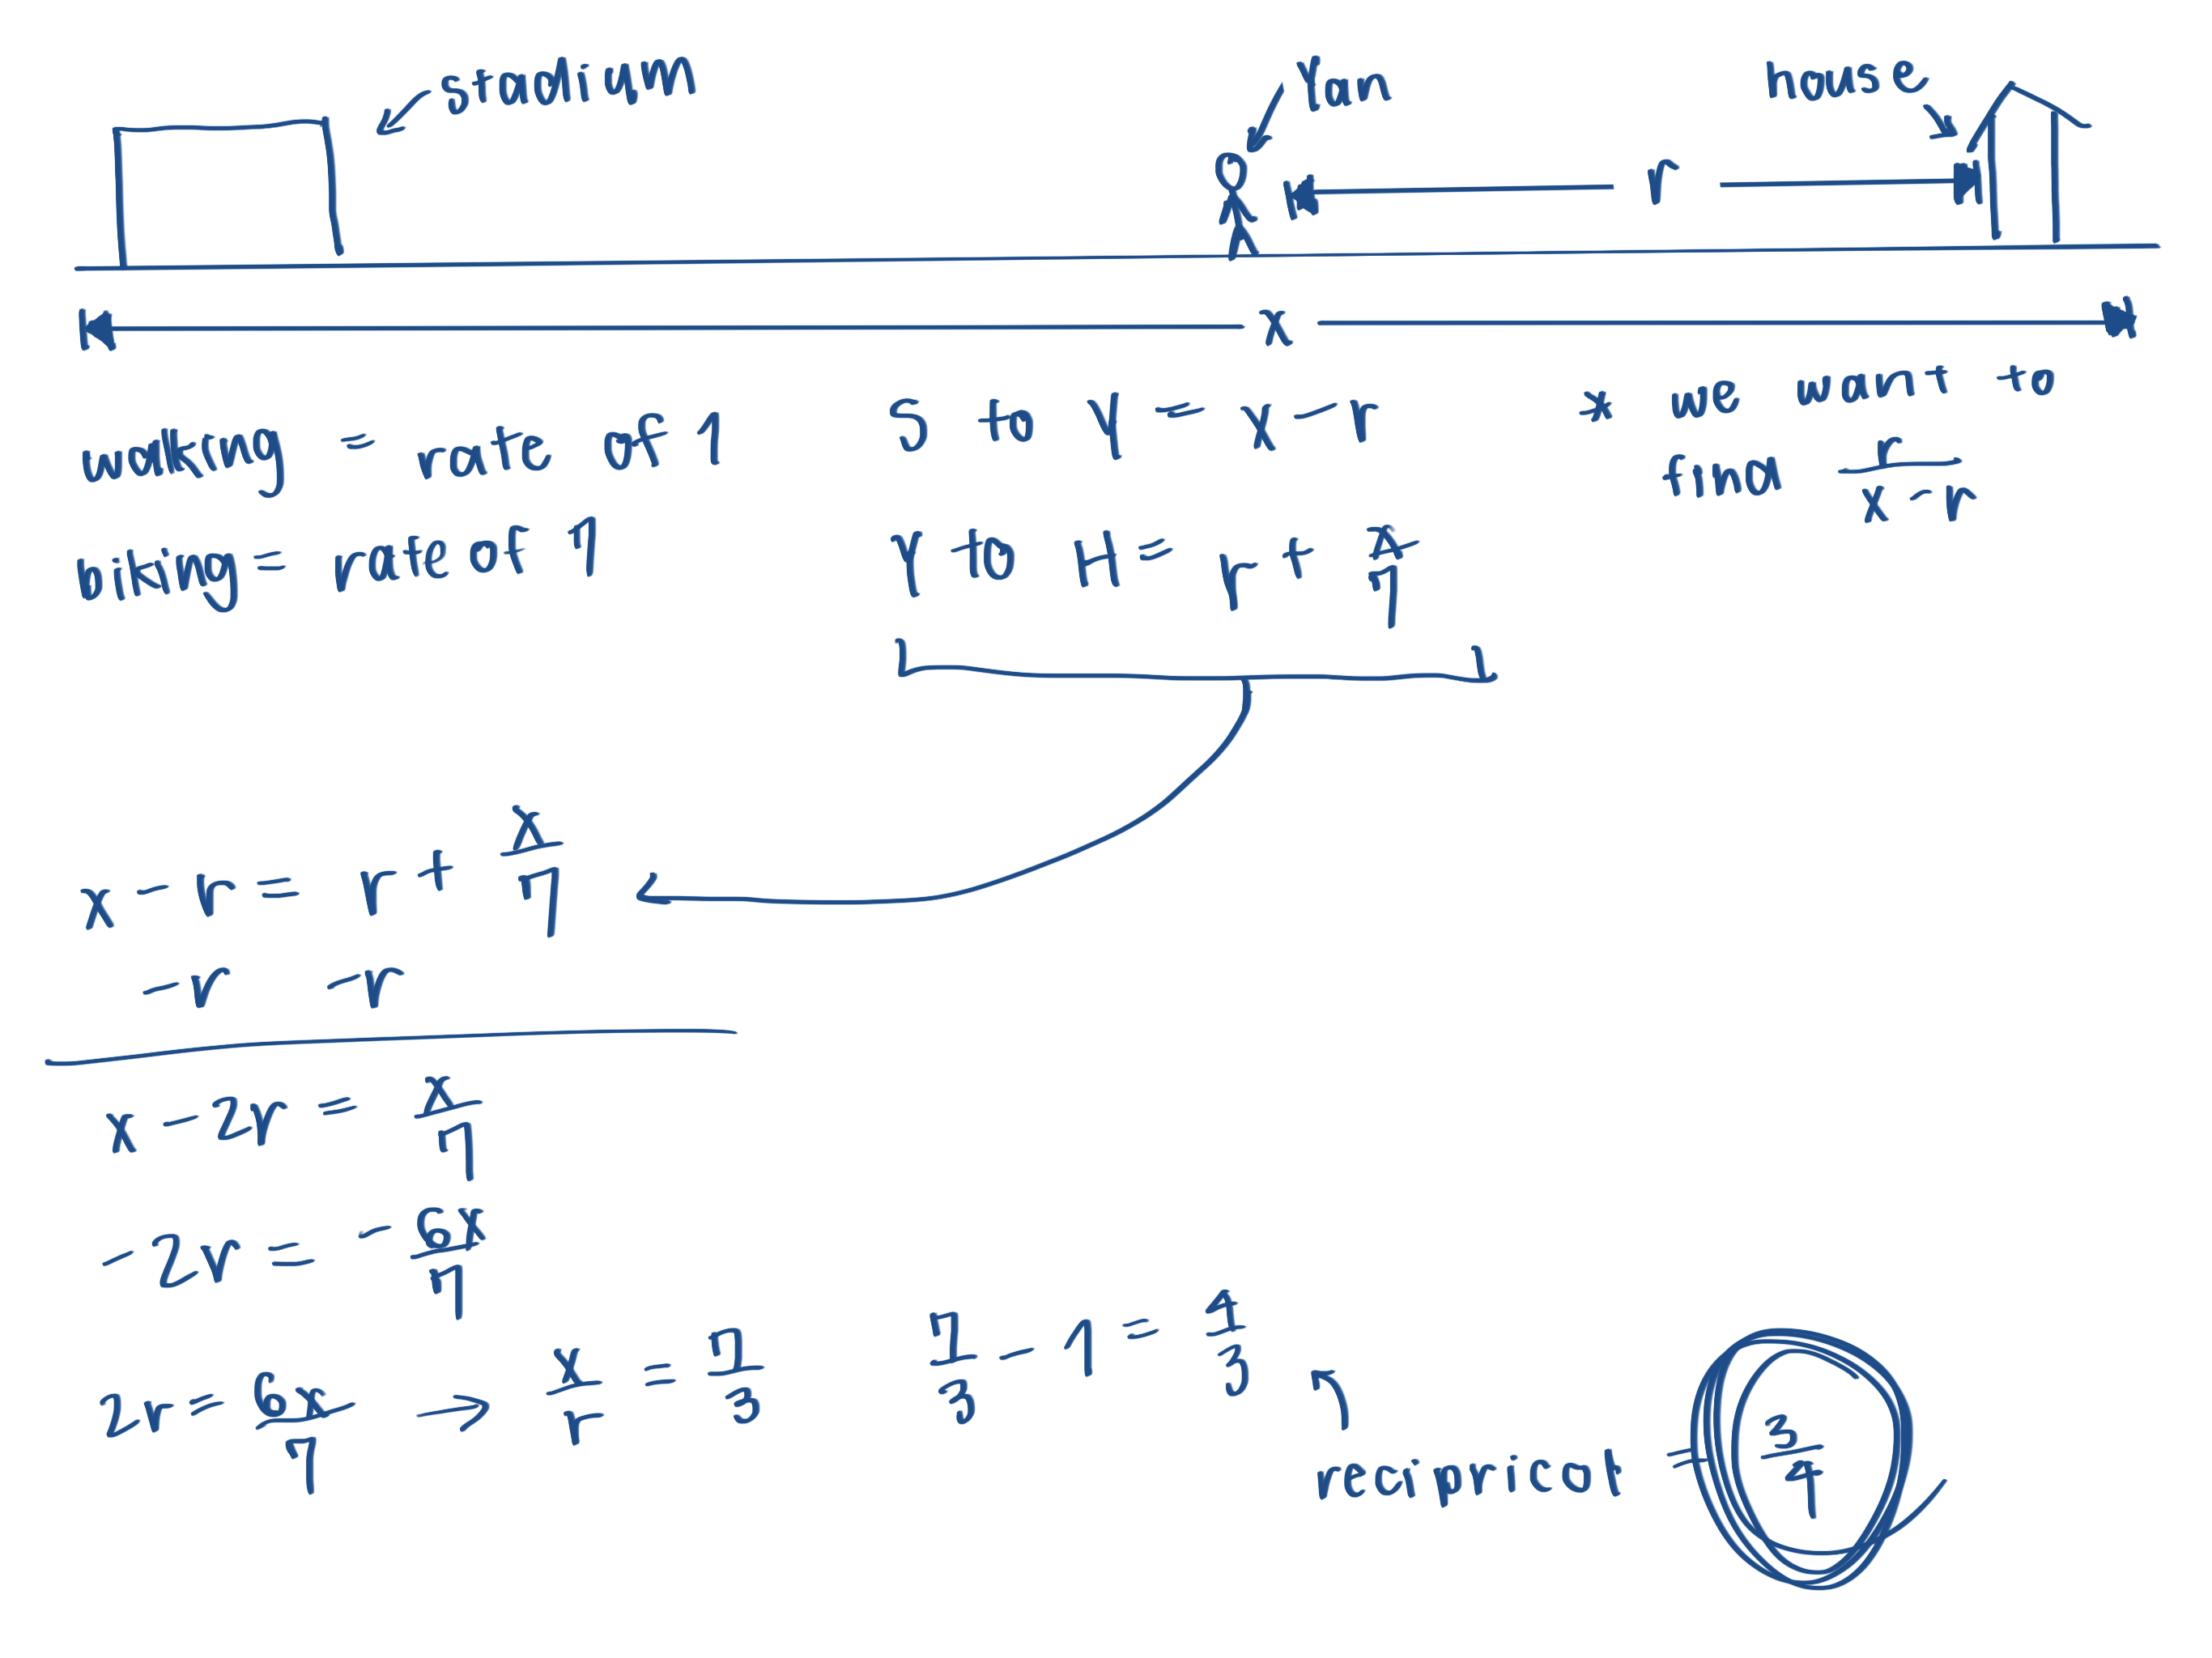 stadium
Yan
house
r
x
walking = rate of 1
biking = rate of 7
S to Y = x - r
Y to H = r + x/7
* we want to
find r/(x - r)
x - r = r + x/7
-r -r
x - 2r = x/7
-2r = -6x/7
2r = 6x/7 → x/r = 7/3
7/3 - 1 = 4/3
recipricol = 3/4